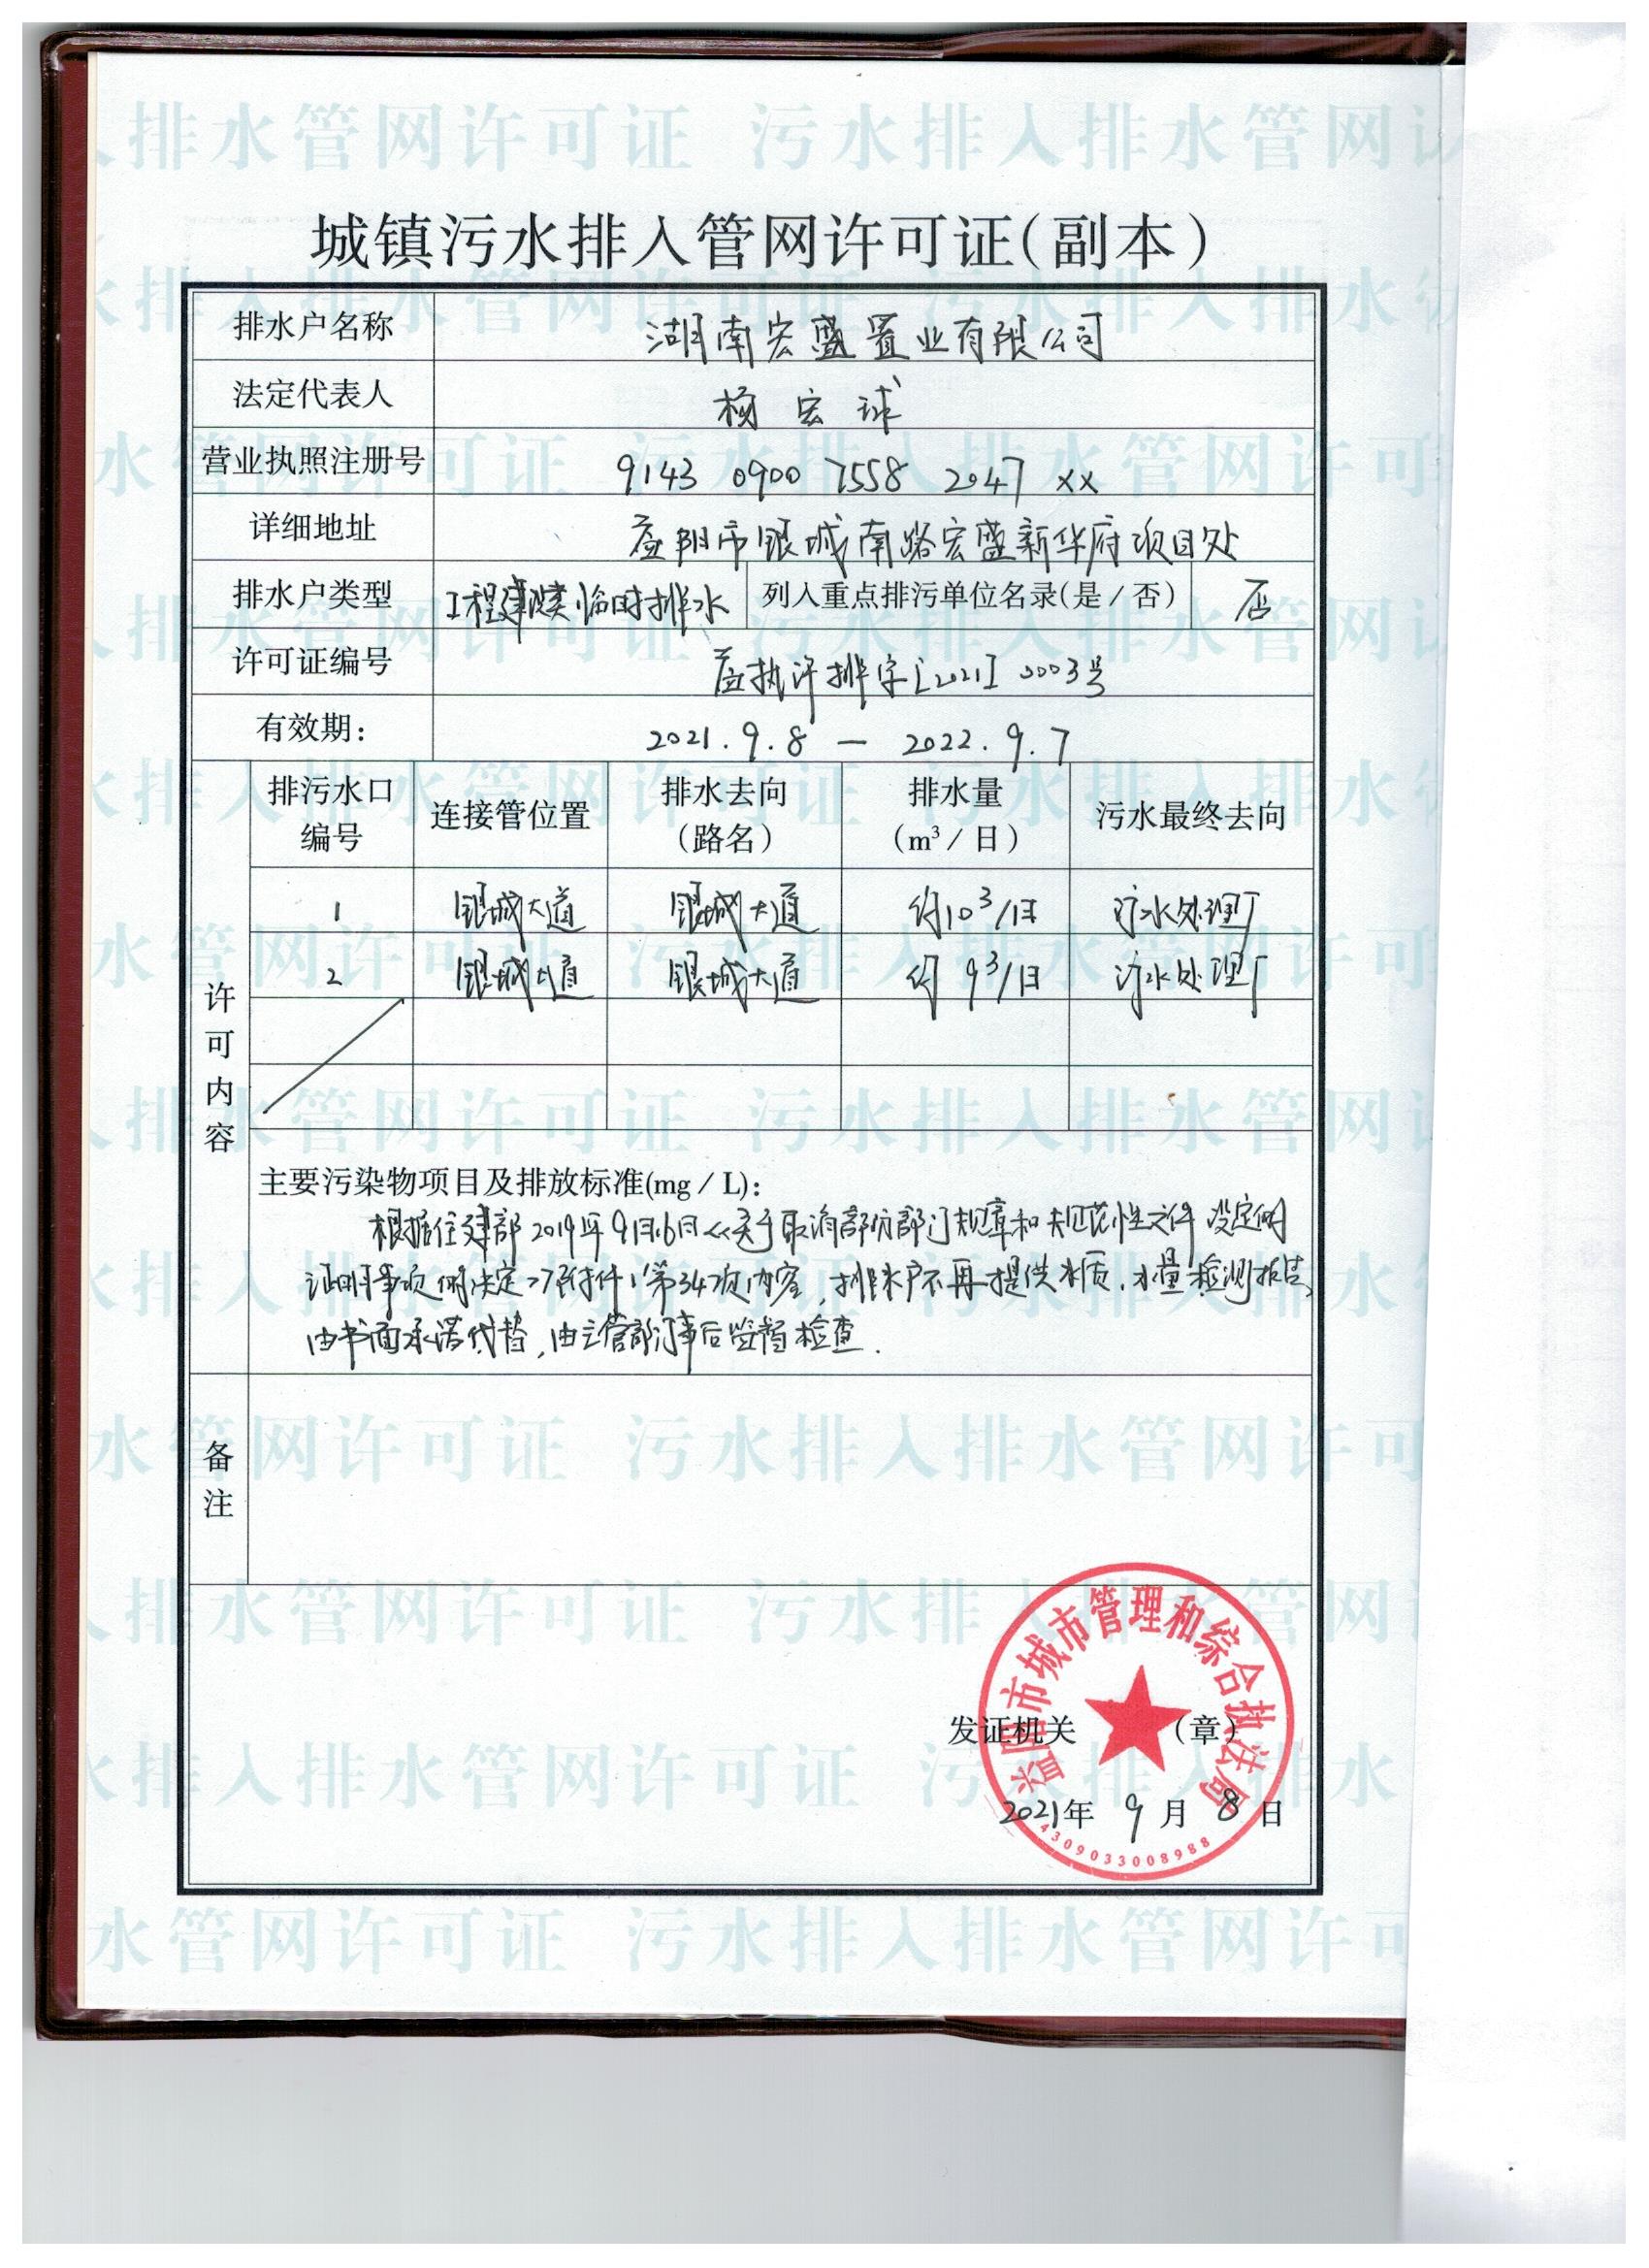 城镇污水排入管网许可证(副本)
排水户名称 湖南宏盛置业有限公司
法定代表人 杨宏球
营业执照注册号 9143 0900 7558 2047 XX
详细地址 益阳市银城南路宏盛新华府项目处
排水户类型 工程建设类临时排水 列入重点排污单位名录(是/否) 否
许可证编号 益执许排字[2021]0003号
有效期: 2021.9.8 — 2022.9.7
许可内容
排污水口编号 连接管位置 排水去向(路名) 排水量(m³/日) 污水最终去向
1 银城大道 银城大道 约10³/日 污水处理厂
2 银城大道 银城大道 约9³/日 污水处理厂
主要污染物项目及排放标准(mg/L):
根据住建部2019年9月16日《关于取消部分部门规章和规范性文件设定的
证明事项的决定》附件1第34项内容,排水户不再提供水质、水量检测报告,
由书面承诺代替,由主管部门事后监督检查.
备注
益阳市城市管理和综合执法局
发证机关 (章)
2021年 9月 8日
4309033008988